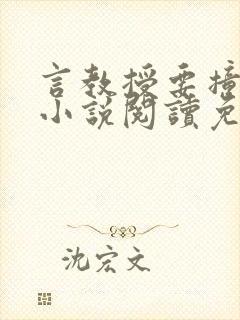 言教授要撞
小說閱讀免
沈宏文